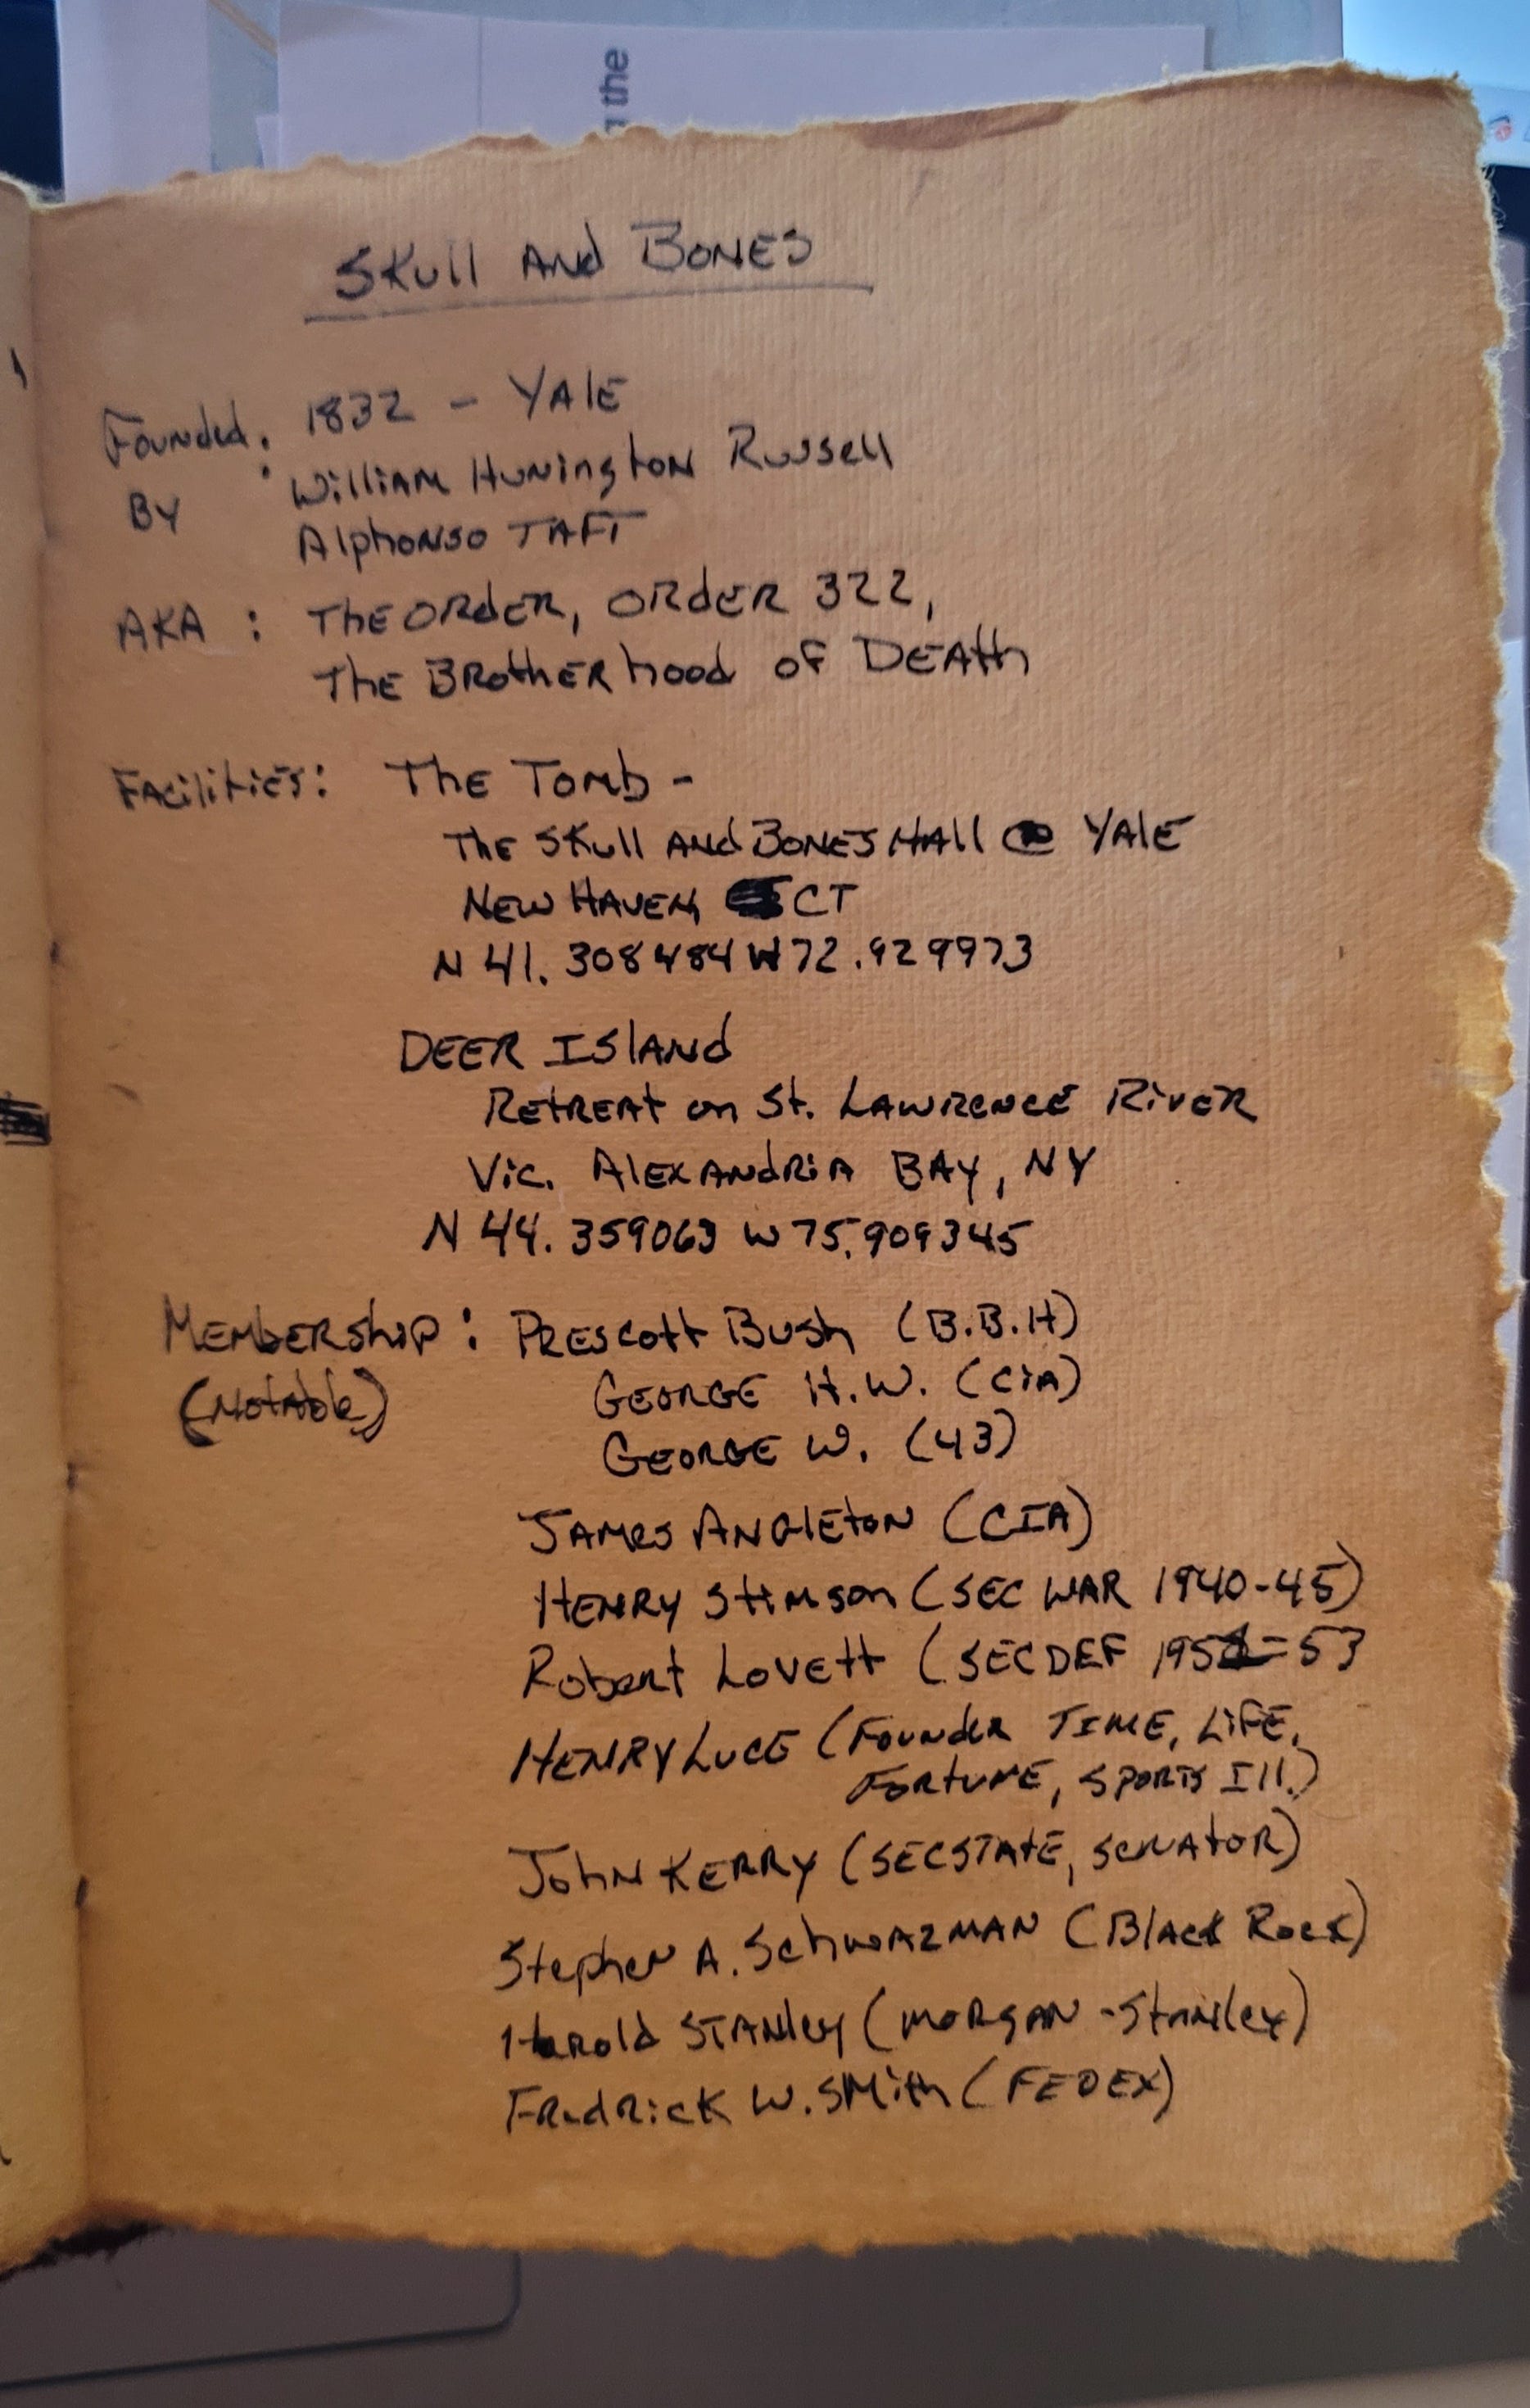 the
Skull And Bones
Founded: 1832 - Yale
By William Hunington Russell
Alphonso Taft
AKA : The Order, Order 322,
The Brotherhood of Death
Facilities: The Tomb -
The Skull And Bones Hall @ Yale
New Haven, CT
N 41.308484 W72.929973
Deer Island
Retreat on St. Lawrence River
Vic. Alexandria Bay, NY
N 44.359063 W75.909345
Membership : Prescott Bush (B.B.H)
(Notable) George H.W. (CIA)
George W. (43)
James Angleton (CIA)
Henry Stimson (Sec War 1940-45)
Robert Lovett (SECDEF 1951-53
Henry Luce (Founder Time, Life,
Fortune, Sports Ill.)
John Kerry (SecState, Senator)
Stephen A. Schwazman (Black Rock)
Harold Stanley (Morgan-Stanley)
Fredrick W. Smith (FEDEX)